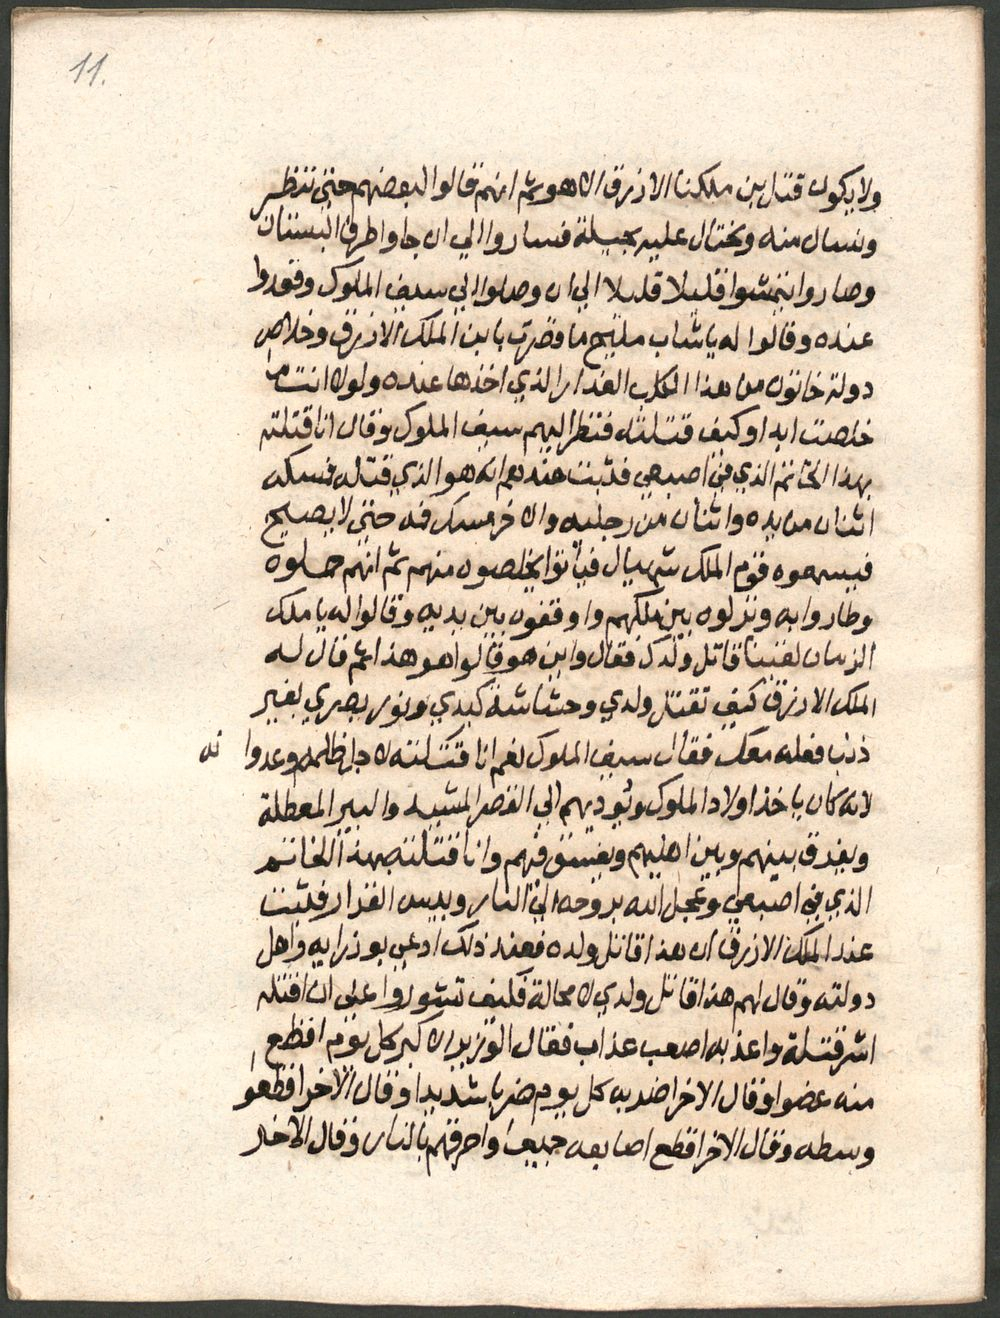 11.
ولا يكون قتل بين ملكنا الازرق الا هو ثم انهم قالوا لبعضهم حتى ننظر
ونسال منه ونحتال عليه بحيلة فساروا الي ان جاوا طرف البستان
وصاروا يتمشوا قليلا قليلا الي ان وصلوا الي سيف الملوك وقعدوا
عنده وقالوا له يا شاب مليح ما قصرت بابن الملك الازرق وخلاص
دولة خاتون من هذا الكلب الغدار الذي اخذها عنده ولولا انت ما
خلصت ابدا وكيف قتلته فنظر اليهم سيف الملوك وقال انا قتلته
بهذا الخاتم الذي في اصبعي فثبت عندهم انه هو الذي قتله فمسكه
اثنان من يده واثنان من رجليه والاخر مسك فمه حتى لا يصيح
فيسمعوه قوم الملك شهيال فياتوا يخلصوه منهم ثم انهم حملوه
وطاروا به ونزلوه بين ملكهم واوقفوه بين يديه وقالوا له يا ملك
الزمان لقينا قاتل ولدك فقال واين هو قالوا هو هذا ثم قال له
الملك الازرق كيف تقتل ولدي وحشاشة كبدي ونور بصري بغير
ذنب فعله معك فقال سيف الملوك نعم انا قتلته لاجل ظلمه وعدوا نه
لانه كان ياخذ اولاد الملوك ويوديهم الي القصر المشيد والبير المعطلة
ويفرق بينهم وبين اهليهم ويفسق فيهم وانا قتلته بهذا الخاتم
الذي في اصبعي وعجل الله بروحه الي النار وبيس القرار فثبت
عند الملك الازرق ان هذا قاتل ولده فعند ذلك ادعي بوزرايه واهل
دولته وقال لهم هذا قاتل ولدي لا محالة فكيف تشوروا علي ان اقتله
اشر قتلة واعذبه اصعب عذاب فقال الوزير الاكبر كل يوم اقطع
منه عضوا وقال الاخر اضربه كل يوم ضربا شديدا وقال الاخر اقطعوا
وسطه وقال الاخر اقطع اصابعه جميعا واحرقهم بالنار وقال الاخر